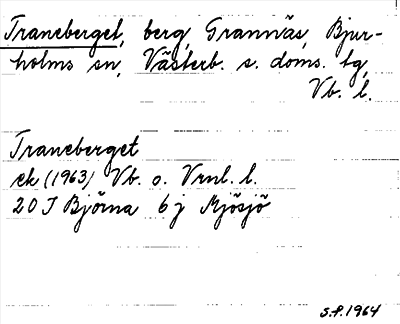 Traneberget, berg, Grannäs, Bjur-
holms sn, Västerb. s. doms. tg,
Vb. l.
Traneberget
ek (1963) Vb. o. Vrnl. l.
20 J Björna 6 j Mjösjö
S.P. 1964